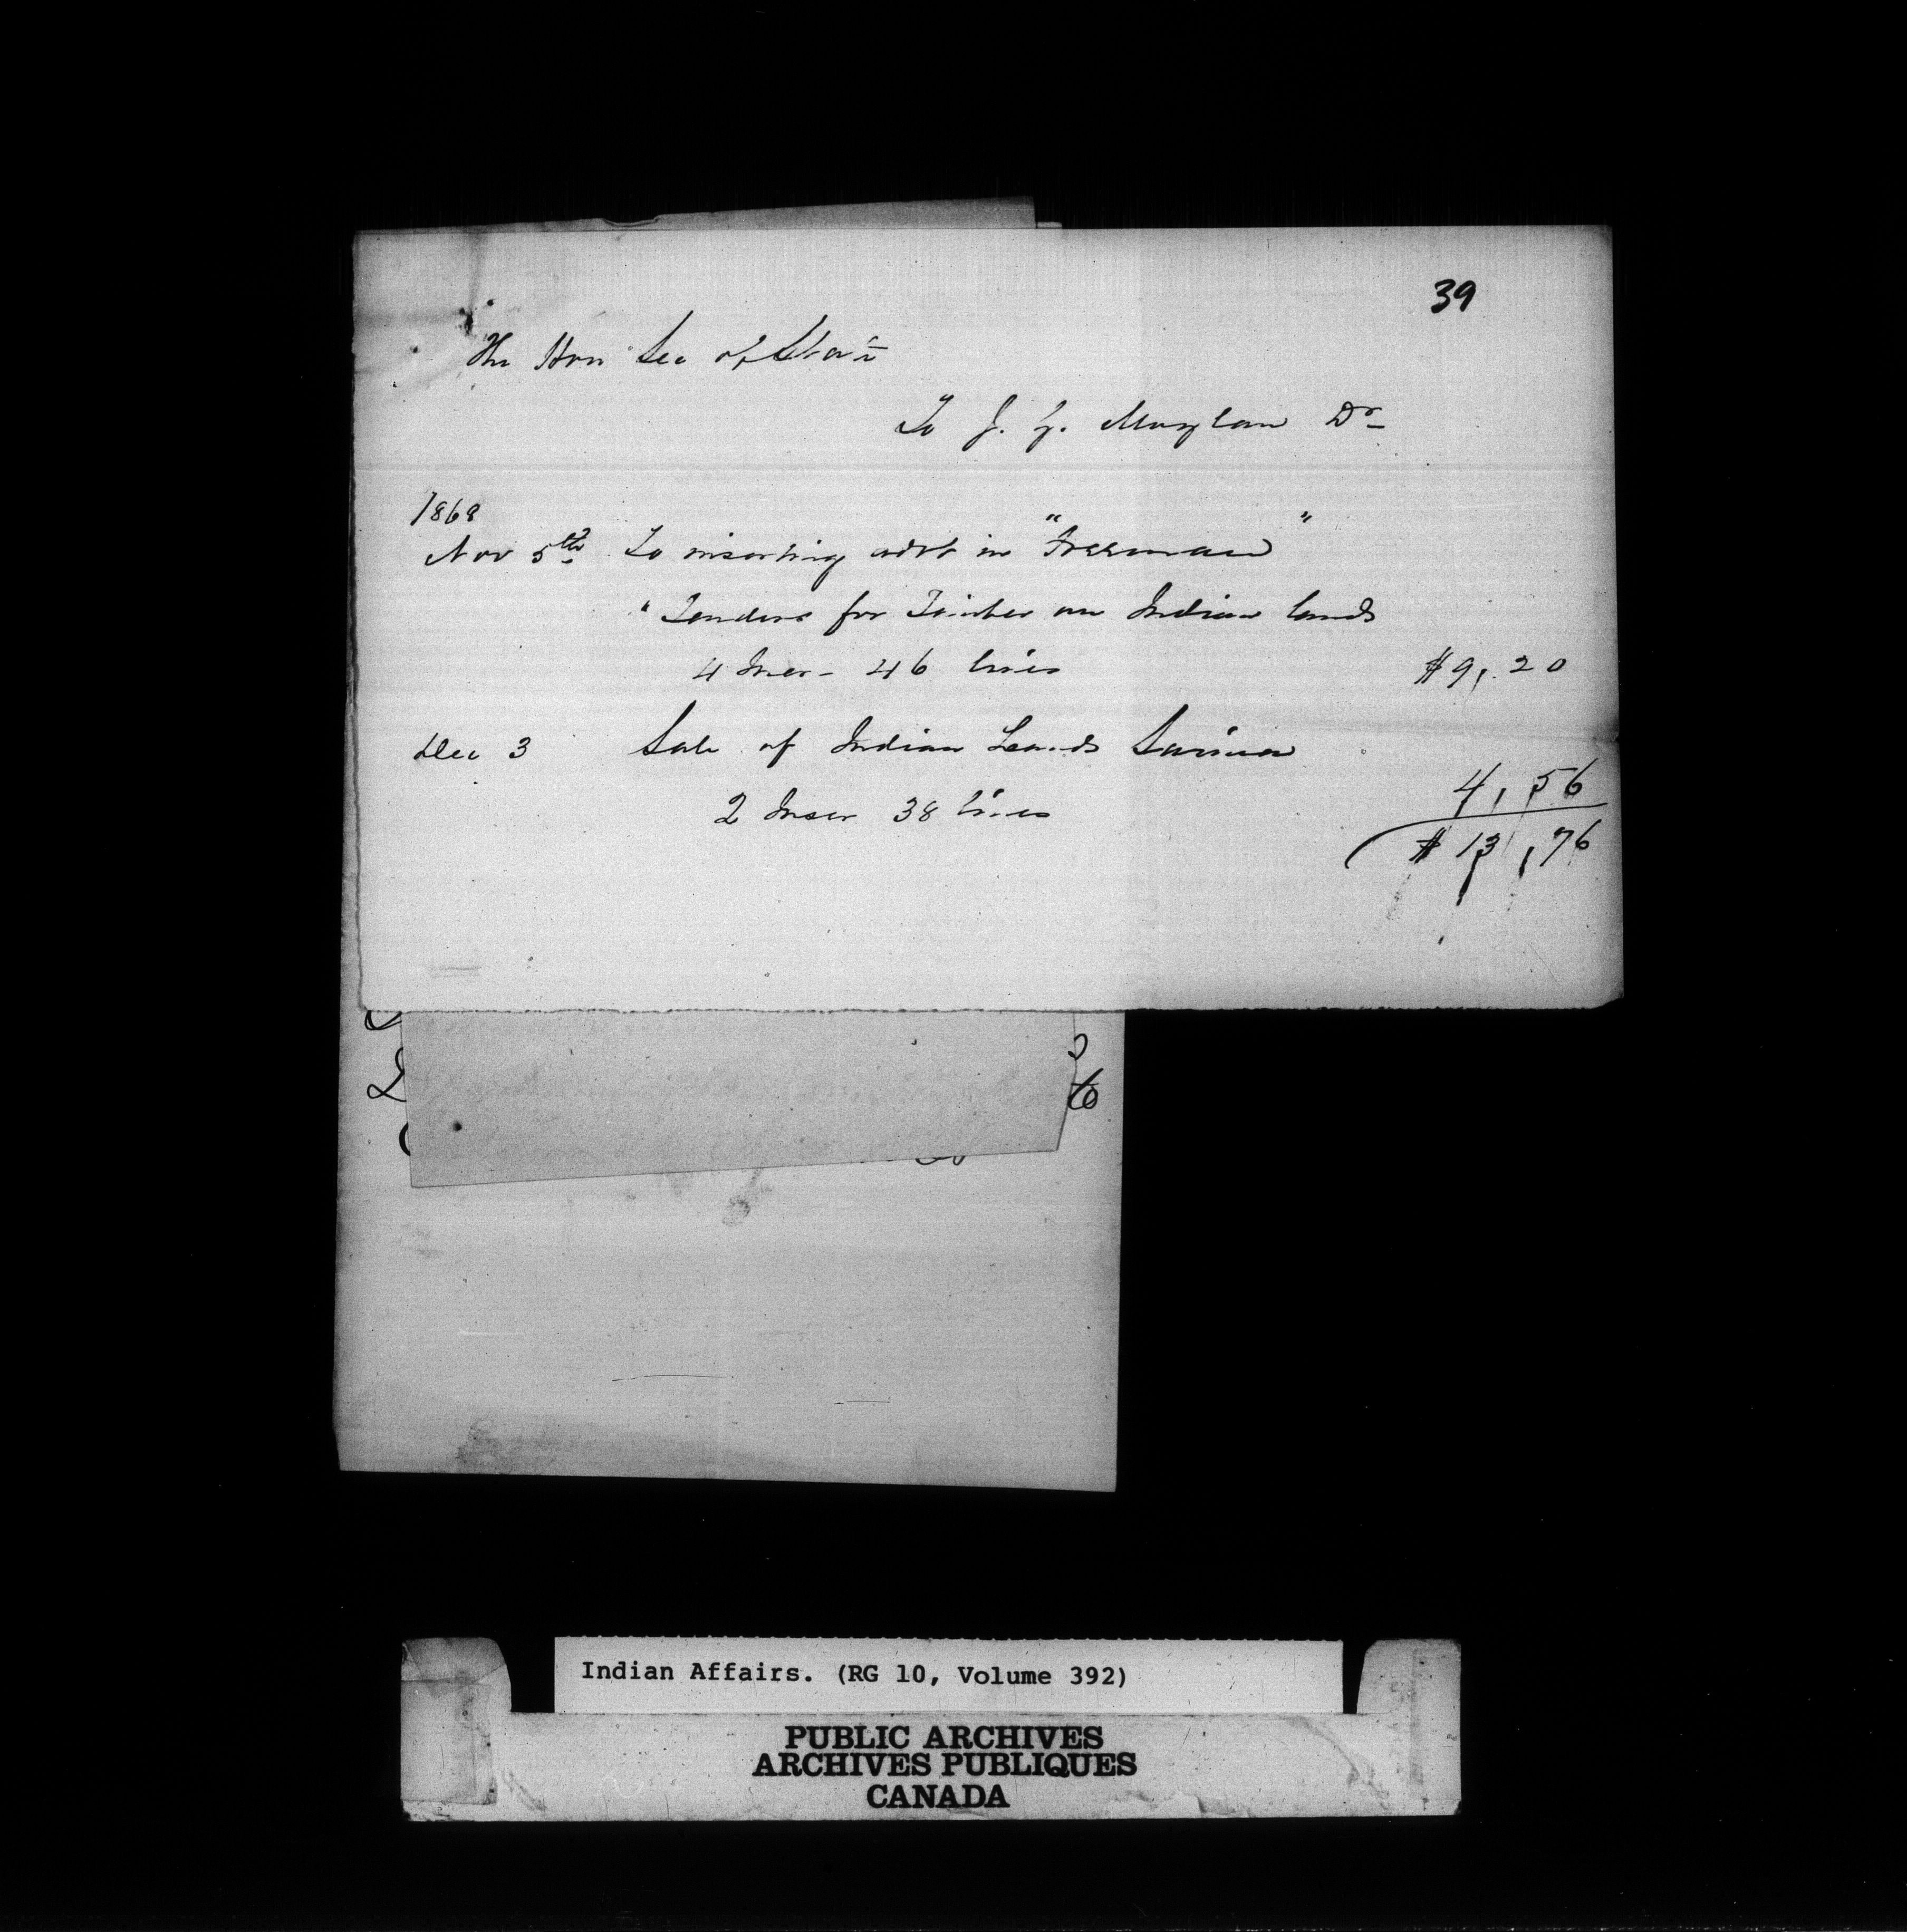 39
The Hon Sec of State
To J. G. Moylan Dr
1868
Nov 5th To inserting advt in "Freeman"
" Tenders for Timber on Indian lands
4 Inser - 46 lines $9,.20
Dec 3 Sale of Indian Lands Sarnia
2 Inser 38 lines 4,56
$13,76
Indian Affairs. (RG 10, Volume 392)
PUBLIC ARCHIVES
ARCHIVES PUBLIQUES
CANADA